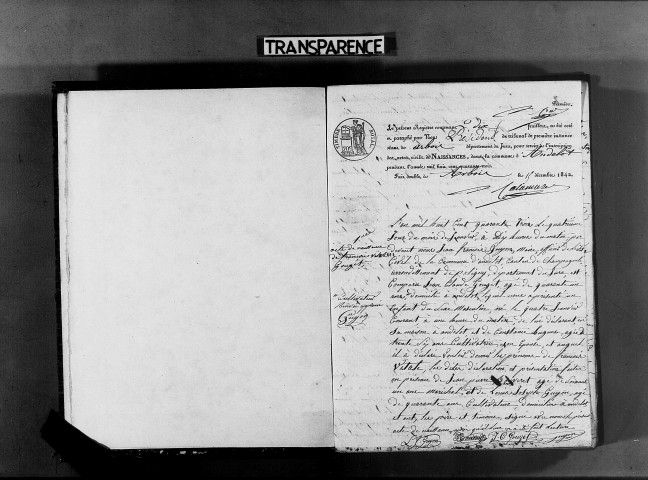 TRANSPARENCE
Première
Le présent Registre contenant dix feuillets, a été coté
et paraphé par Nous Président du tribunal de première instance
séant à Arbois département du Jura, pour servir à l'inscription
des actes civils de NAISSANCES, dans la commune d'Andelot
pendant l'année mil huit cent quarante-trois.
Fait double, à Arbois le 15 décembre 1842
1er
acte de naissance
de françois Vital
Gouget
L'an mil huit cent quarante trois le quatrième
jour du mois de janvier, à dix heures du matin par
devant nous Jean François Guyon, Maire, officier de l'état
Civil de la Commune d'andelot Canton de Champagnole
arrondissement de poligny, département du Jura, est
Comparu Jean Claude Gouget, agé de quarante
ans, domicilié à andelot, lequel nous a présenté un
Enfant du sexe Masculin, né le quatre janvier
Courant à une heure du matin de lui déclarant en
sa maison à andelot et de Constance agée de
trente six ans Cultivatrice, son Epouse et auquel
il a déclaré vouloir donner les prénoms de françois
Vital, les dites déclaration et présentation faites
en présence de Jean pierre agé de soixante
un ans maréchal, et de Louis Joseph Guyon, agé
de quarante ans Cultivateur domiciliés à andelot
et ont, les père et témoins signé avec nous le présent
acte de naissance après qu'il leur en a été fait lecture
J. C. Gouget